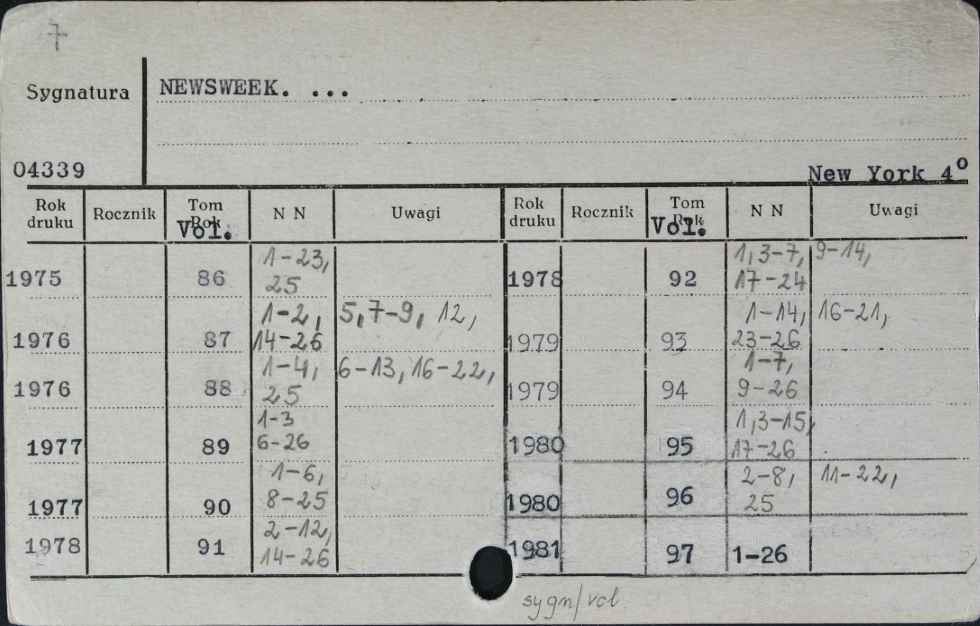 7
Sygnatura NEWSWEEK. ...
04339 New York 4°
Rok druku Rocznik Tom Rok Vol. N N Uwagi Rok druku Rocznik Tom Rok Vol. N N Uwagi
1975 86 1-23, 25
1976 87 1-2, 5,7-9, 12, 14-26
1976 88 1-4, 6-13, 16-22, 25
1977 89 1-3 6-26
1977 90 1-6, 8-25
1978 91 2-12, 14-26
1978 92 1,3-7, 9-14, 17-24
1979 93 1-14, 16-21, 23-26
1979 94 1-7, 9-26
1980 95 1,3-15, 17-26
1980 96 2-8, 11-22, 25
1981 97 1-26
sygn/vol